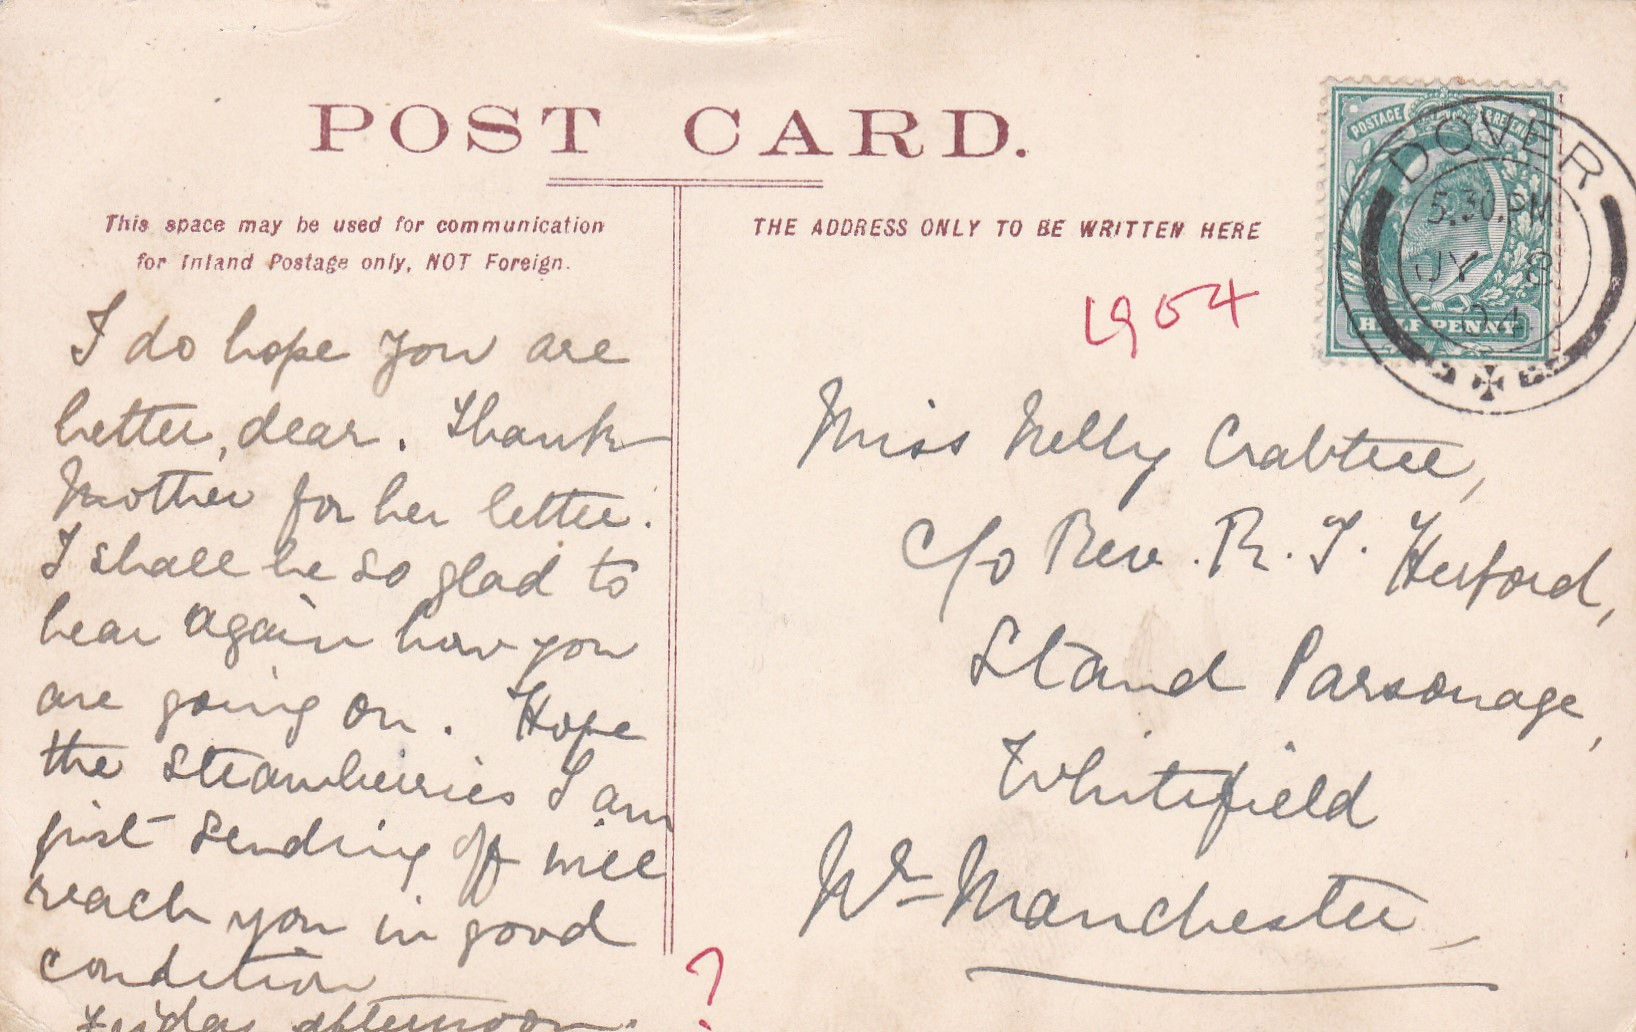 POST CARD.
This space may be used for communication
for Inland Postage only, NOT Foreign.
I do hope you are
better, dear. Thank
Mother for her letter.
I shall be so glad to
hear again how you
are going on. Hope
the strawberries I am
just sending off will
reach you in good
condition
Friday afternoon.
THE ADDRESS ONLY TO BE WRITTEN HERE
1904
Miss Nelly Crabtree,
c/o Rev. R. T. Herford,
Stand Parsonage,
Whitefield
Nr Manchester
?
POSTAGE REVENUE
HALF PENNY
DOVER
5.30.PM
JY 8
04